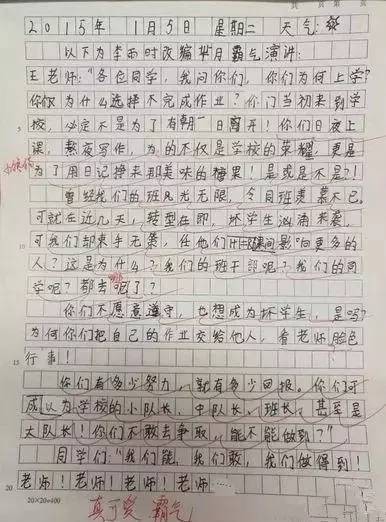 2015年 1月5日 星期二 天气:
以下为李雨时改编 霸气演讲:
王老师:“各位同学,我问你们,你们为何上学?
你们为什么选择不完成作业?你们当初来到学
校,必定不是为了有朝一日离开!你们日夜上
课,熬夜写作,为的不仅是学校的荣耀,更是
为了用日记挣来那美味的糖果!是或是不是?!
曾经我们的班风光无限,令同班羡慕不已。
可就在近几天,转型在即,坏学生汹涌来袭,
可我们却束手无策,任他们 影响更多的
人?这是为什么?我们的班干部呢?我们的同
学呢?都去哪了?
你们不愿意遵守,也想成为坏学生,是吗?
为何你们把自己的作业交给他人,看老师脸色
行事!
你们有多少努力,就有多少回报。你们可
成以为学校的小队长,中队长,班长,甚至是
大队长!你们不敢去争取,能不能做到?”
同学们:“我们能,我们敢,我们做得到!
老师!老师!老师!老师……
20×20=400
真可爱 霸气